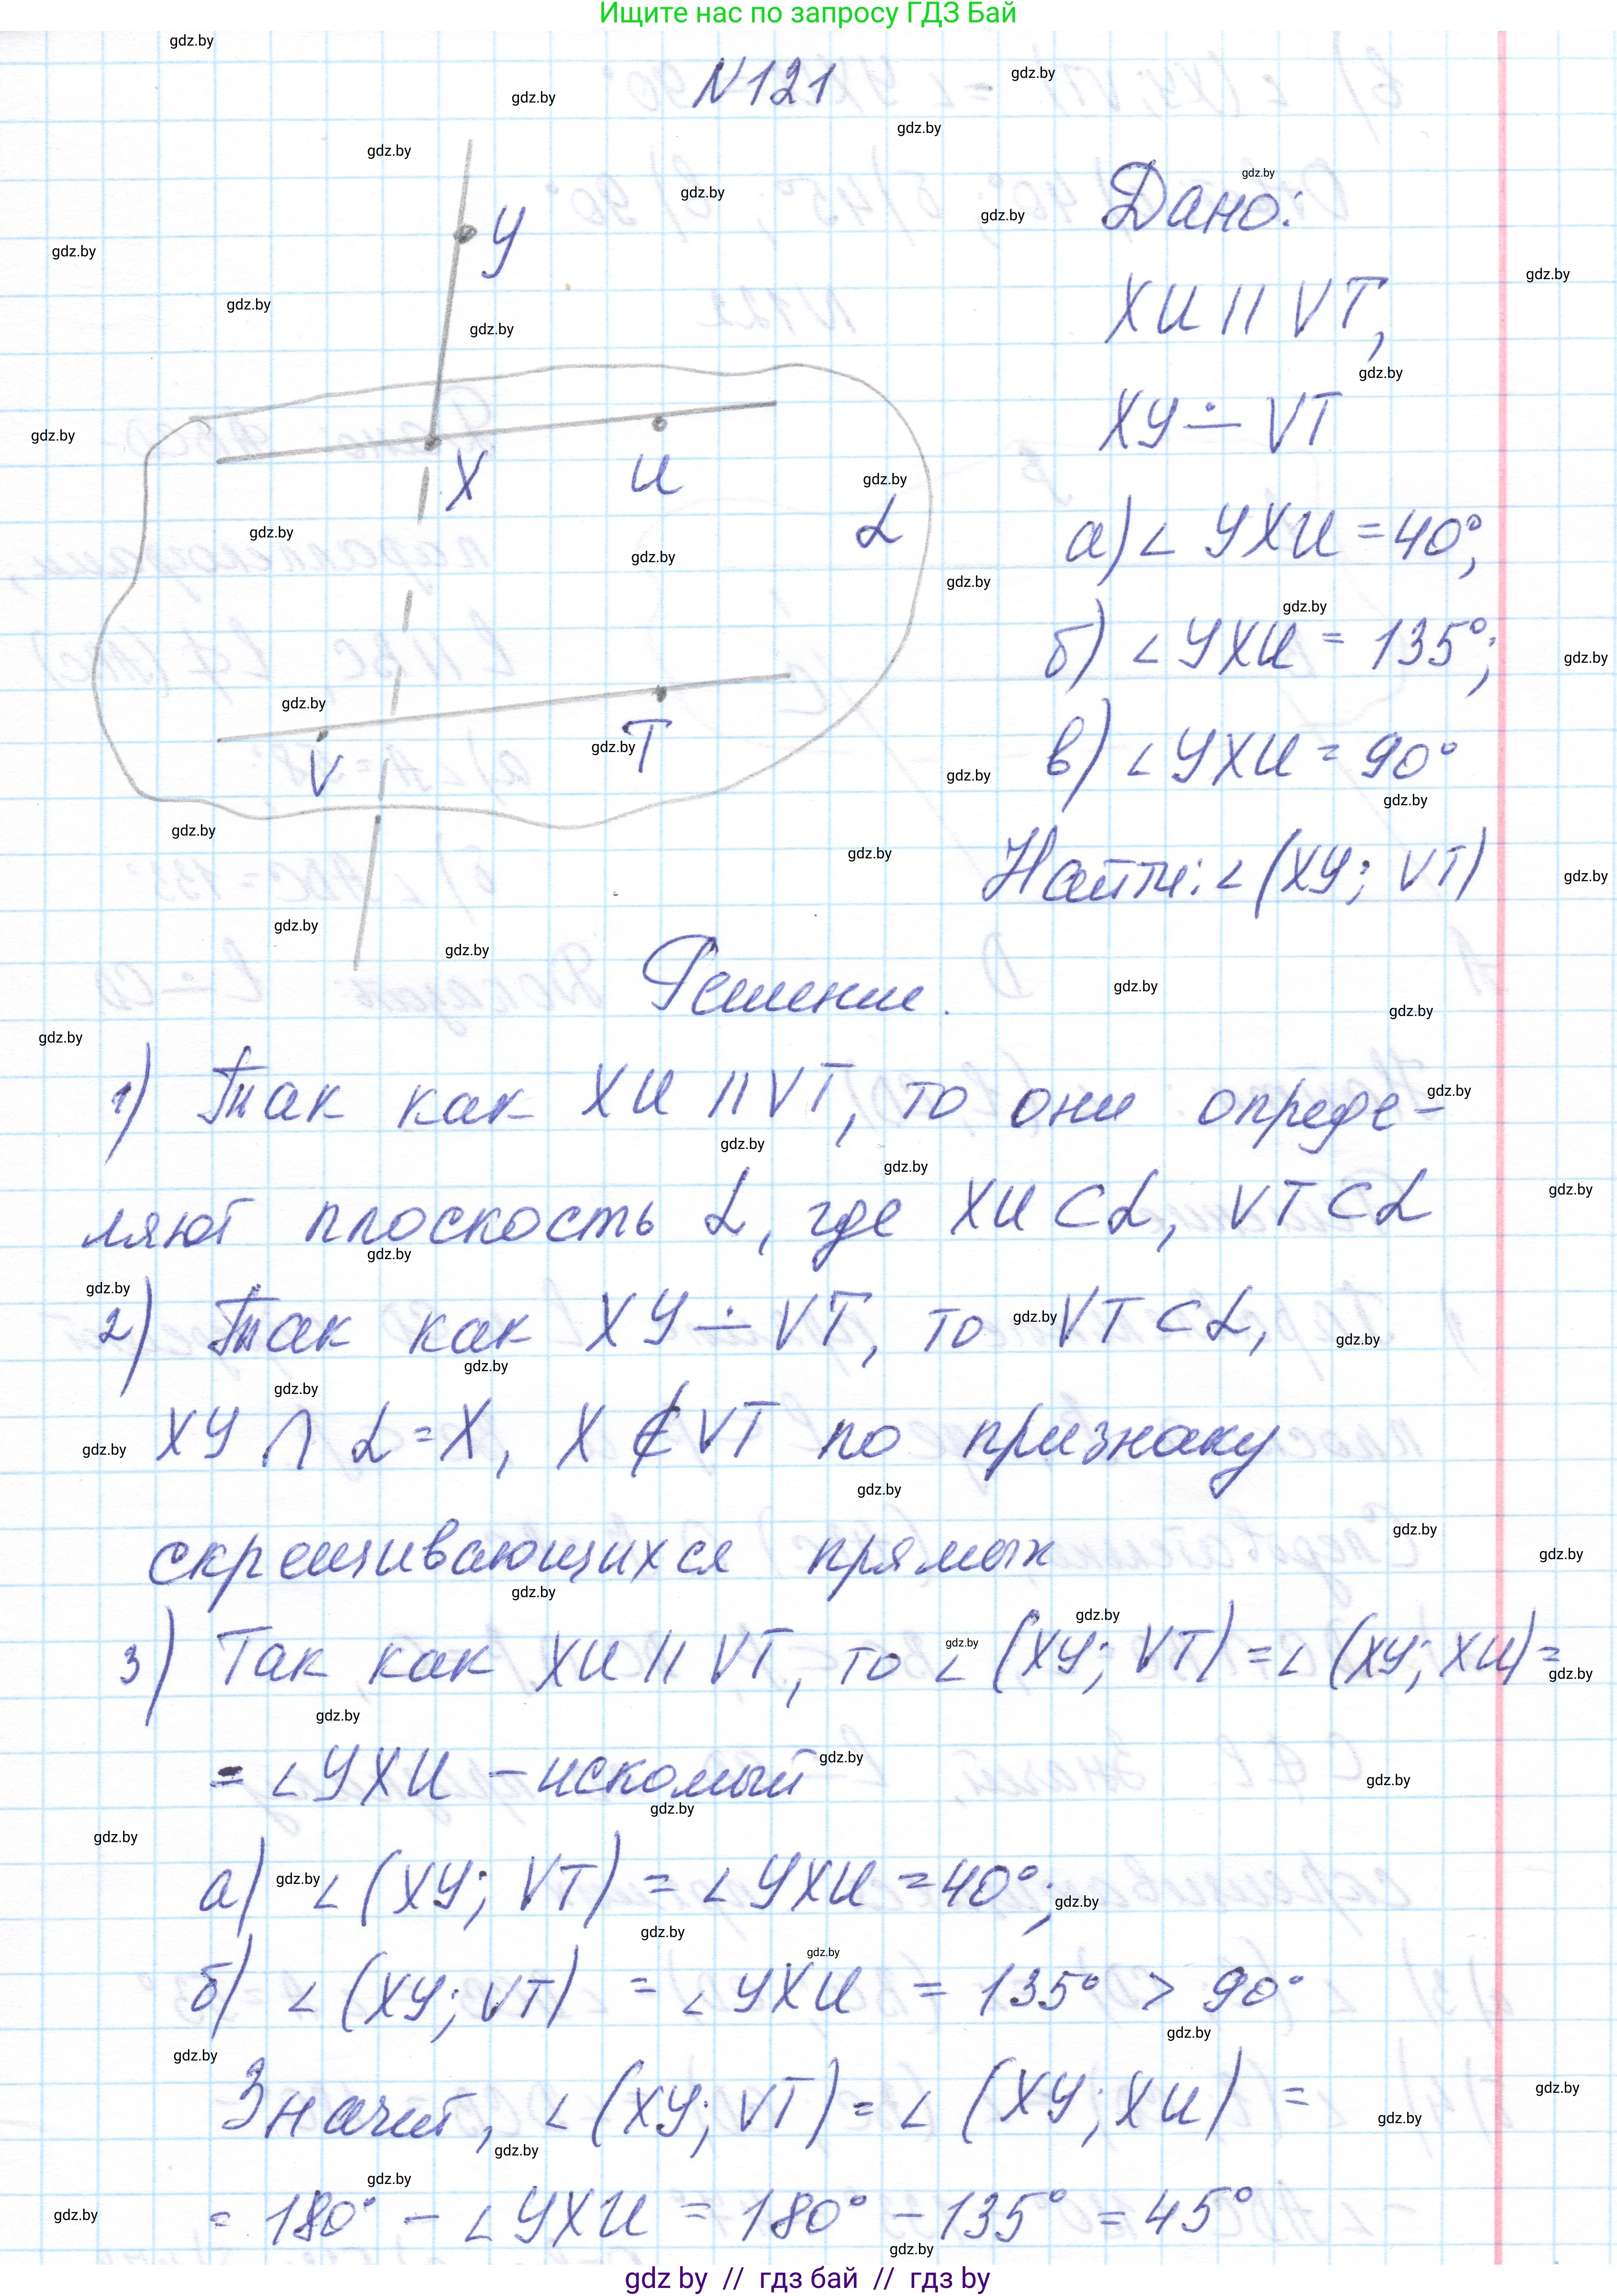 Ищите нас по запросу ГДЗ Бай
N121
Y
X
U
V
T
α
Дано:
XU || VT,
XY ∸ VT
а) ∠ YXU = 40°;
б) ∠ YXU = 135°;
в) ∠ YXU = 90°
Найти: ∠ (XY; VT)
Решение.
1) Так как XU || VT, то они опреде-
ляют плоскость α, где XU ⊂ α, VT ⊂ α
2) Так как XY ∸ VT, то VT ⊂ α,
XY ∩ α = X, X ∉ VT по признаку
скрещивающихся прямых
3) Так как XU || VT, то ∠ (XY; VT) = ∠ (XY; XU) =
= ∠ YXU – искомый
а) ∠ (XY; VT) = ∠ YXU = 40°;
б) ∠ (XY; VT) = ∠ YXU = 135° > 90°
Значит, ∠ (XY; VT) = ∠ (XY; XU) =
= 180° – ∠ YXU = 180° – 135° = 45°
gdz by // гдз бай // гдз by